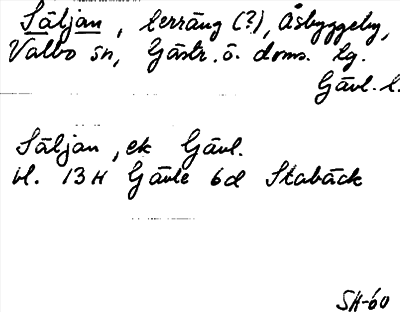 Säljan, terräng (?), Åsbyggeby,
Valbo sn, Gästr. ö. doms. tg.
Gävl. l.
Säljan, ek Gävl.
bl. 13H Gävle 6d Stabäck
SH-60